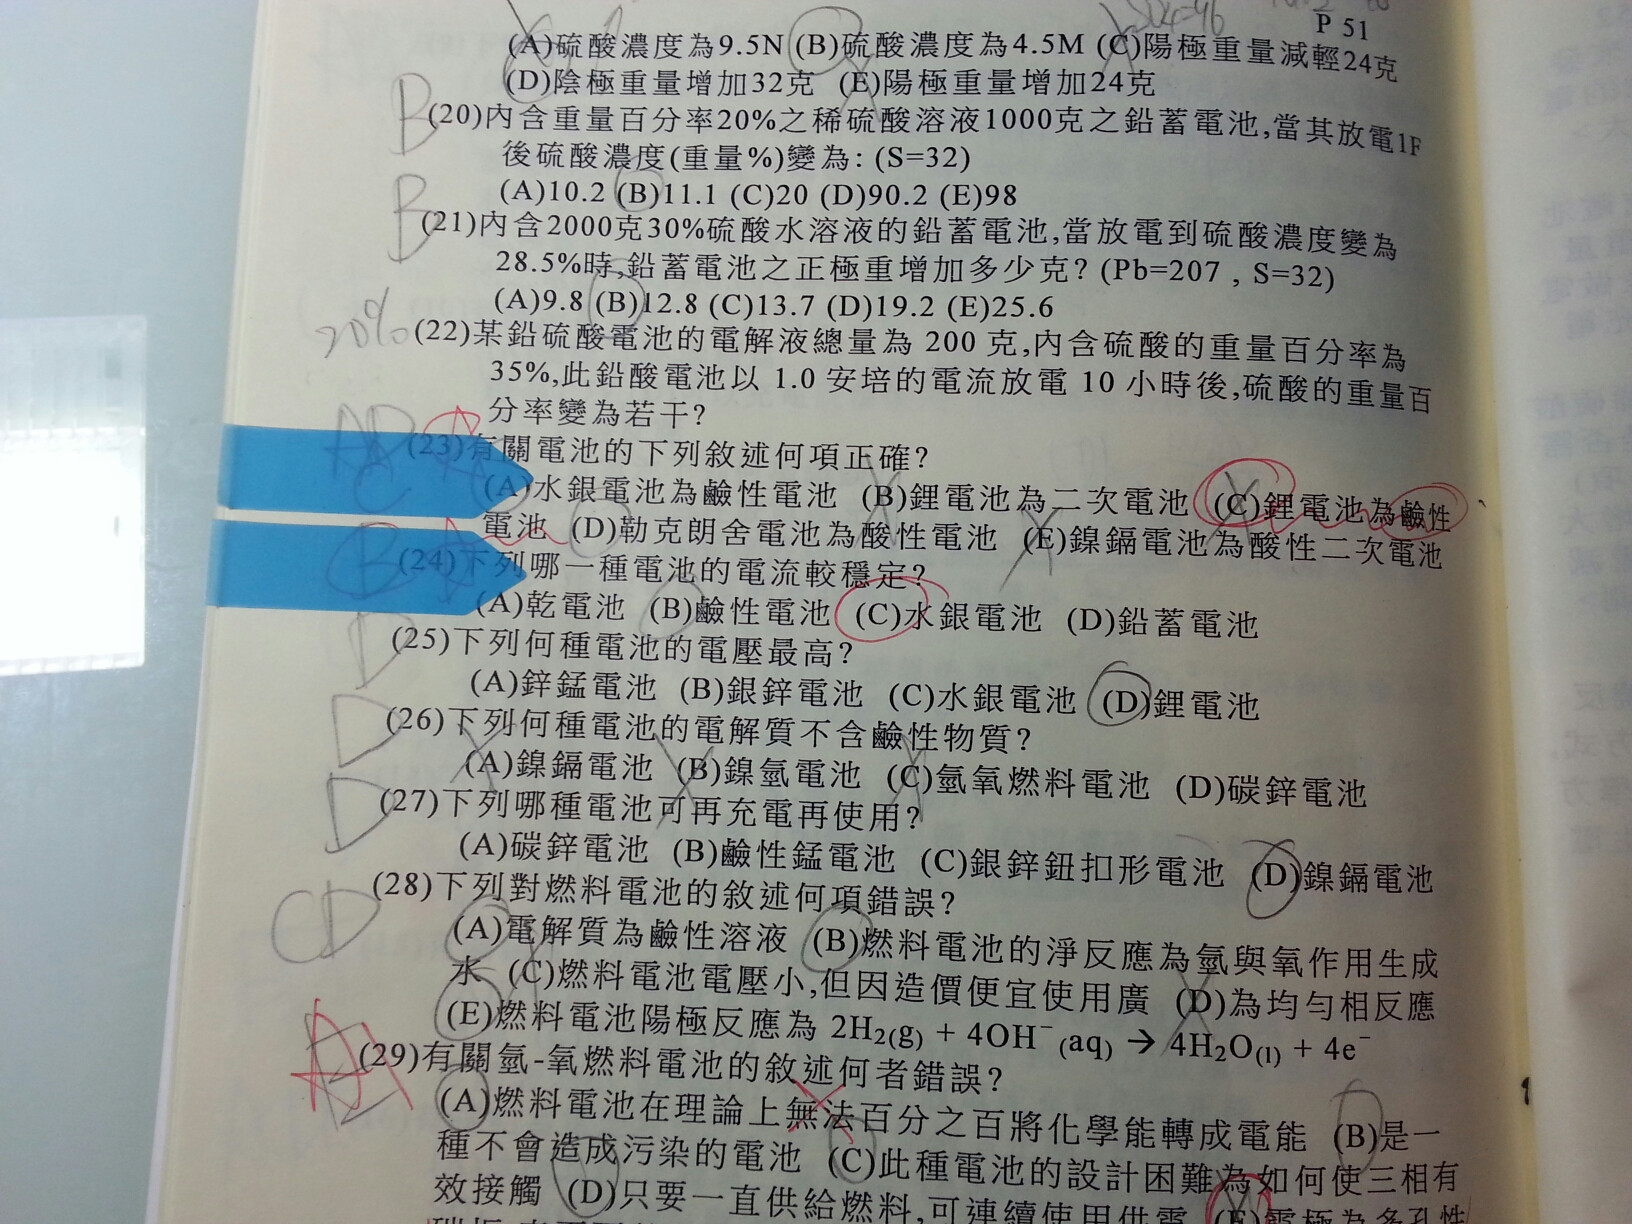 P 51
(A)硫酸濃度為9.5N (B)硫酸濃度為4.5M (C)陽極重量減輕24克
(D)陰極重量增加32克 (E)陽極重量增加24克
B
(20)內含重量百分率20%之稀硫酸溶液1000克之鉛蓄電池,當其放電1F
後硫酸濃度(重量%)變為: (S=32)
(A)10.2 (B)11.1 (C)20 (D)90.2 (E)98
B
(21)內含2000克30%硫酸水溶液的鉛蓄電池,當放電到硫酸濃度變為
28.5%時,鉛蓄電池之正極重增加多少克? (Pb=207 , S=32)
(A)9.8 (B)12.8 (C)13.7 (D)19.2 (E)25.6
20%
(22)某鉛硫酸電池的電解液總量為 200 克,內含硫酸的重量百分率為
35%,此鉛酸電池以 1.0 安培的電流放電 10 小時後,硫酸的重量百
分率變為若干?
(23)有關電池的下列敘述何項正確?
(A)水銀電池為鹼性電池 (B)鋰電池為二次電池 (C)鋰電池為鹼性
電池 (D)勒克朗舍電池為酸性電池 (E)鎳鎘電池為酸性二次電池
B
(24)下列哪一種電池的電流較穩定?
(A)乾電池 (B)鹼性電池 (C)水銀電池 (D)鉛蓄電池
D
(25)下列何種電池的電壓最高?
(A)鋅錳電池 (B)銀鋅電池 (C)水銀電池 (D)鋰電池
D
(26)下列何種電池的電解質不含鹼性物質?
(A)鎳鎘電池 (B)鎳氫電池 (C)氫氧燃料電池 (D)碳鋅電池
D
(27)下列哪種電池可再充電再使用?
(A)碳鋅電池 (B)鹼性錳電池 (C)銀鋅鈕扣形電池 (D)鎳鎘電池
CD
(28)下列對燃料電池的敘述何項錯誤?
(A)電解質為鹼性溶液 (B)燃料電池的淨反應為氫與氧作用生成
水 (C)燃料電池電壓小,但因造價便宜使用廣 (D)為均勻相反應
(E)燃料電池陽極反應為 2H₂(g) + 4OH⁻(aq) → 4H₂O(l) + 4e⁻
(29)有關氫-氧燃料電池的敘述何者錯誤?
(A)燃料電池在理論上無法百分之百將化學能轉成電能 (B)是一
種不會造成污染的電池 (C)此種電池的設計困難為如何使三相有
效接觸 (D)只要一直供給燃料,可連續使用供電 (E)電極為多孔性